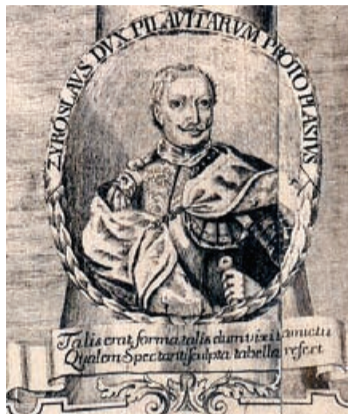 ZYROSLAVS DVX PILAVITARVM PROTOPLASTVS
Talis erat forma talis dum vixit amictu
Qualem Spectanti sculpta tabella refert